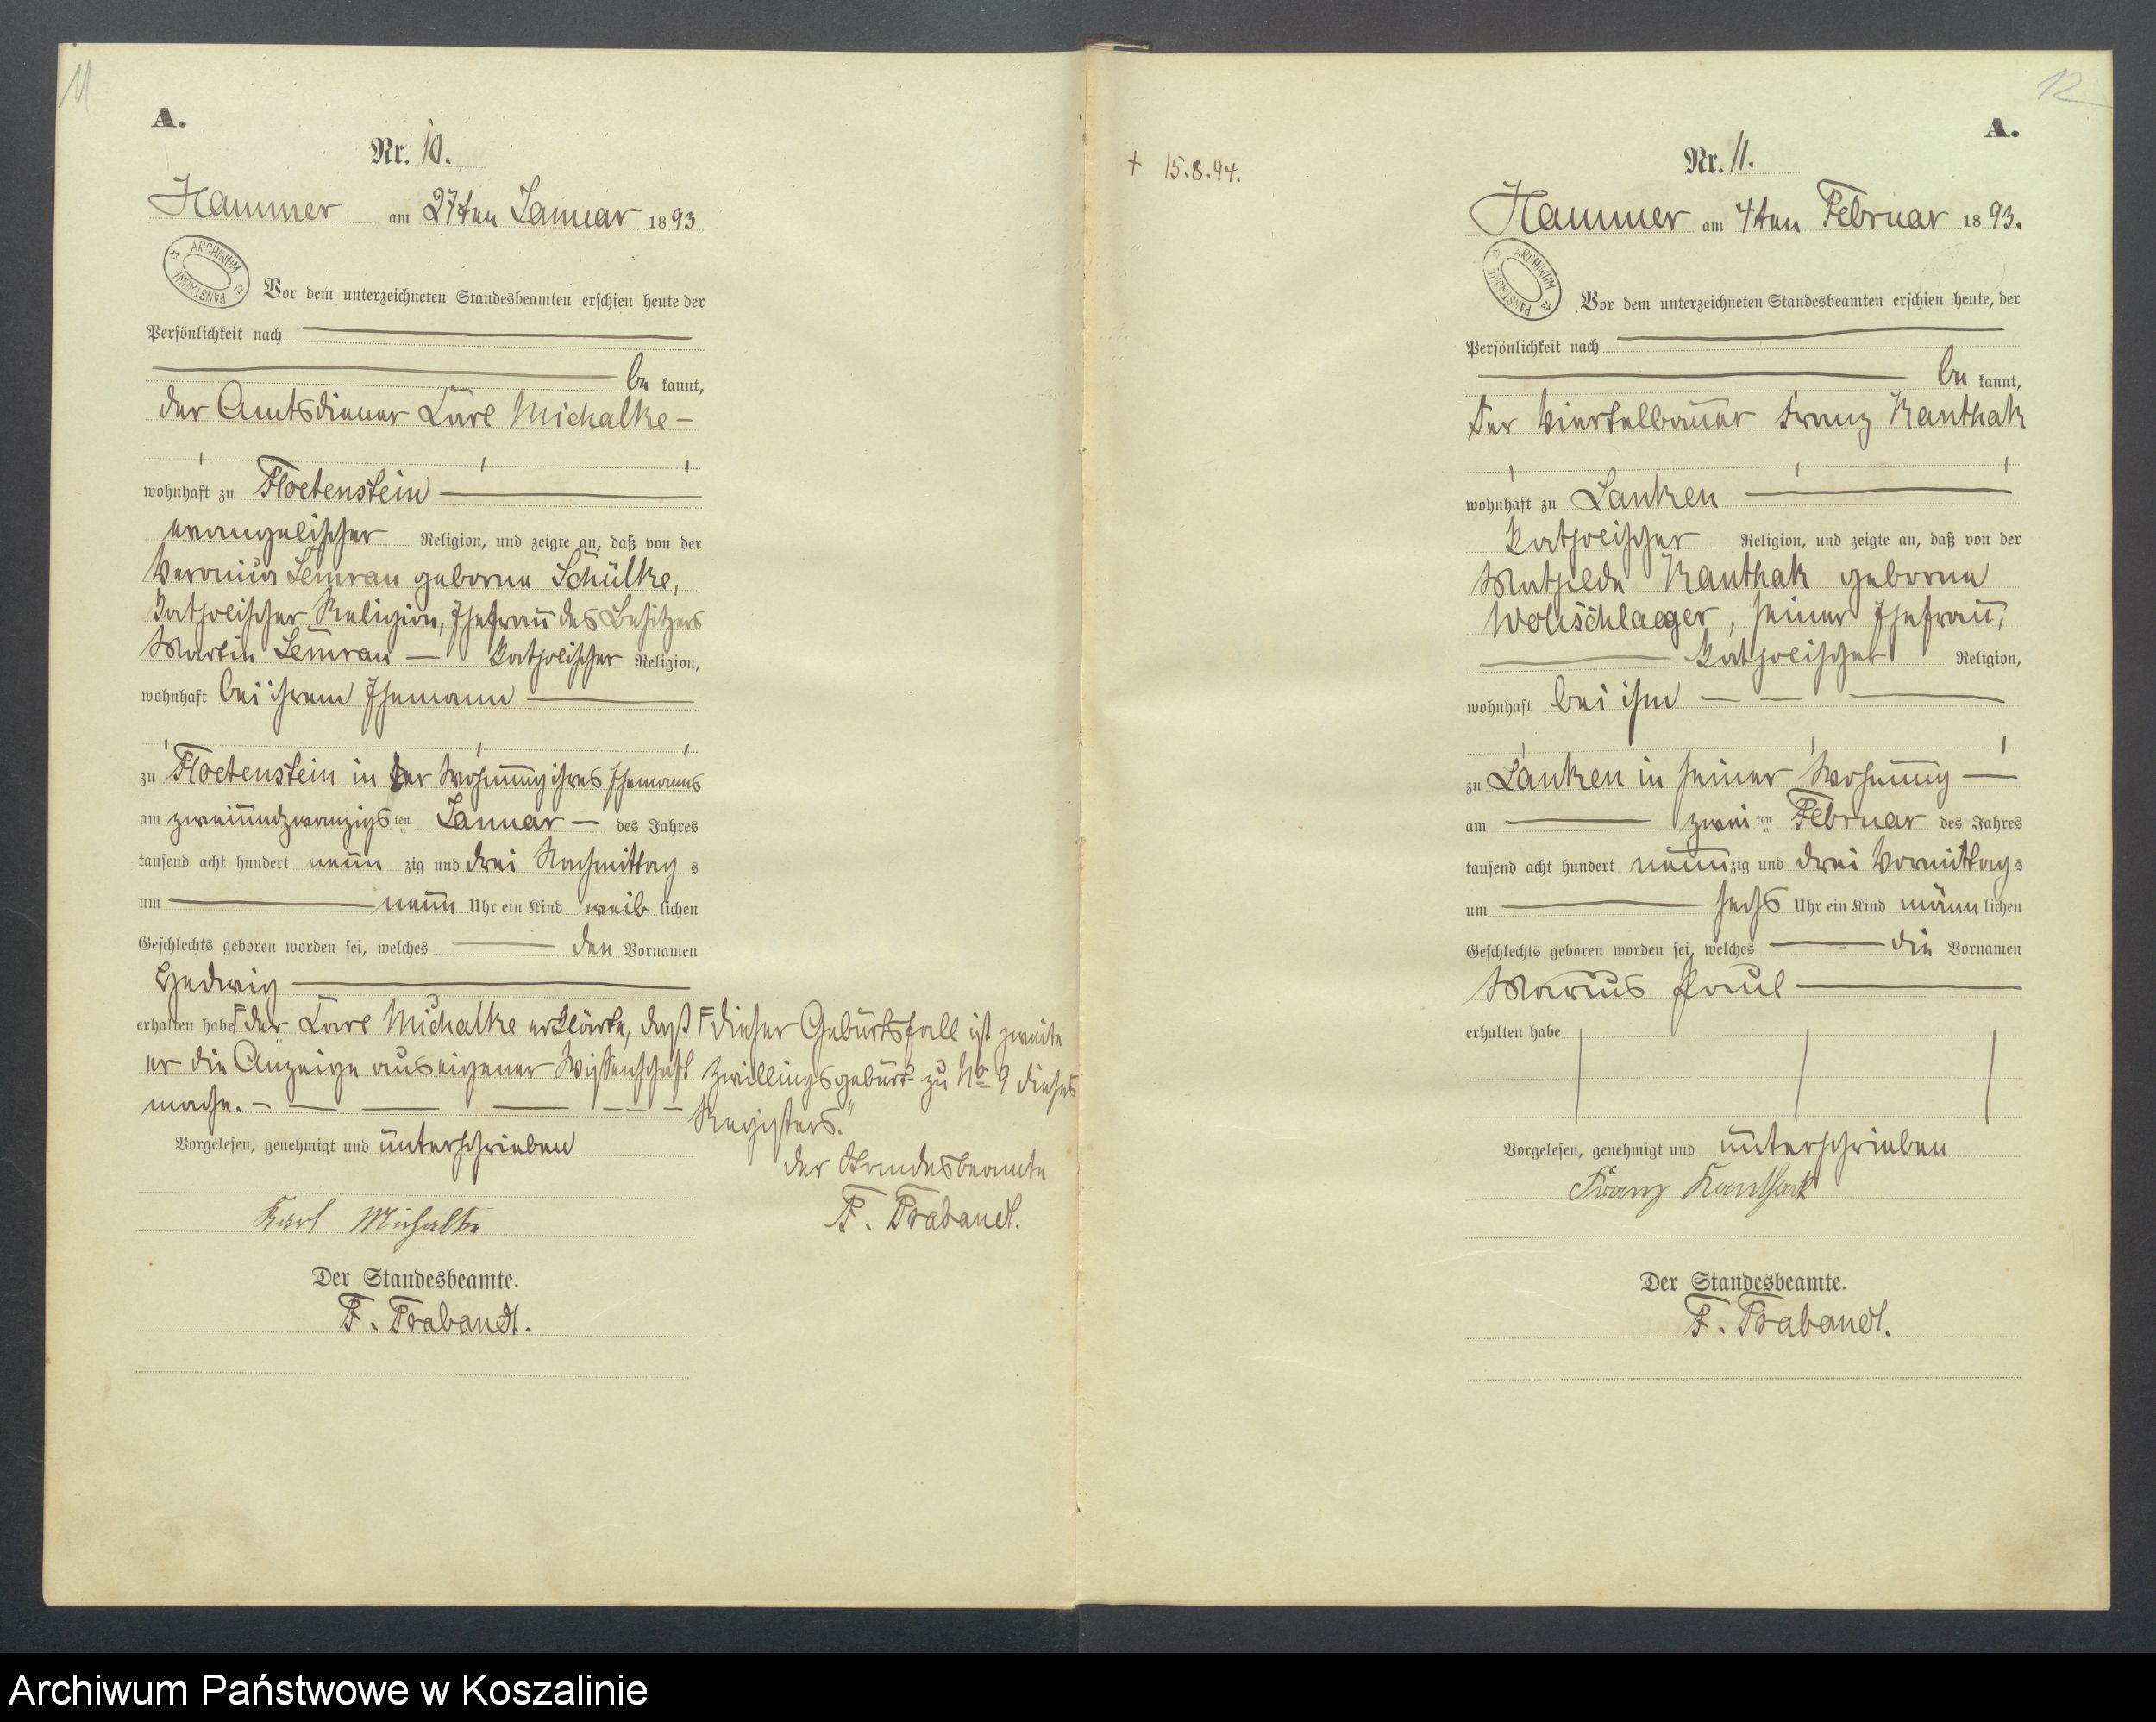 11
A.
Nr. 10.
Hammer am 27ten Januar 1893
ARCHIWUM PAŃSTWOWE
Vor dem unterzeichneten Standesbeamten erschien heute der
Persönlichkeit nach
be kannt,
der Amtsdiener Carl Michalke –
wohnhaft zu Floetenstein
evangelischer Religion, und zeigte an, daß von der
Veronica Semrau geborne Schülke,
katholischer Religion, Ehefrau des Besitzers
Martin Semrau — katholischer Religion,
wohnhaft bei ihrem Ehemann
zu Floetenstein in der Wohnung ihres Ehemanns
am zweiundzwanzigs ten Januar — des Jahres
tausend acht hundert neun zig und drei Nachmittag s
um neun Uhr ein Kind weib lichen
Geschlechts geboren worden sei, welches den Vornamen
Hedwig
erhalten habe der Carl Michalke erklärte, daß
er die Anzeige aus eigener Wissenschaft
mache.
Vorgelesen, genehmigt und unterschrieben
Karl Michalke
Der Standesbeamte.
F. Trabandt.
dieser Geburtsfall ist zweite
Zwillingsgeburt zu No 9 dieses
Registers."
der Standesbeamte
F. Trabandt.
12
A.
+ 15.8.94.
Nr. 11.
Hammer am 4ten Februar 1893.
ARCHIWUM PAŃSTWOWE
Vor dem unterzeichneten Standesbeamten erschien heute, der
Persönlichkeit nach
be kannt,
der Viertelbauer Franz Kanthak
wohnhaft zu Lanken
katholischer Religion, und zeigte an, daß von der
Mathilde Kanthak geborne
Wollschlaeger, seiner Ehefrau,
katholischer Religion,
wohnhaft bei ihm
zu Lanken in seiner Wohnung —
am zwei ten Februar des Jahres
tausend acht hundert neun zig und drei Vormittag s
um sechs Uhr ein Kind männ lichen
Geschlechts geboren worden sei, welches die Vornamen
Marius Paul
erhalten habe
Vorgelesen, genehmigt und unterschrieben
Franz Kanthack
Der Standesbeamte.
F. Trabandt.
Archiwum Państwowe w Koszalinie